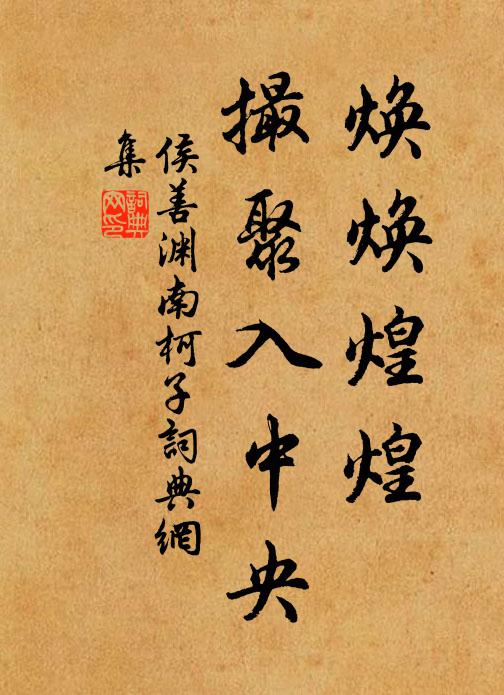 焕焕煌煌
撮聚入中央
侯善渊南柯子詞典網
集
詞典网印